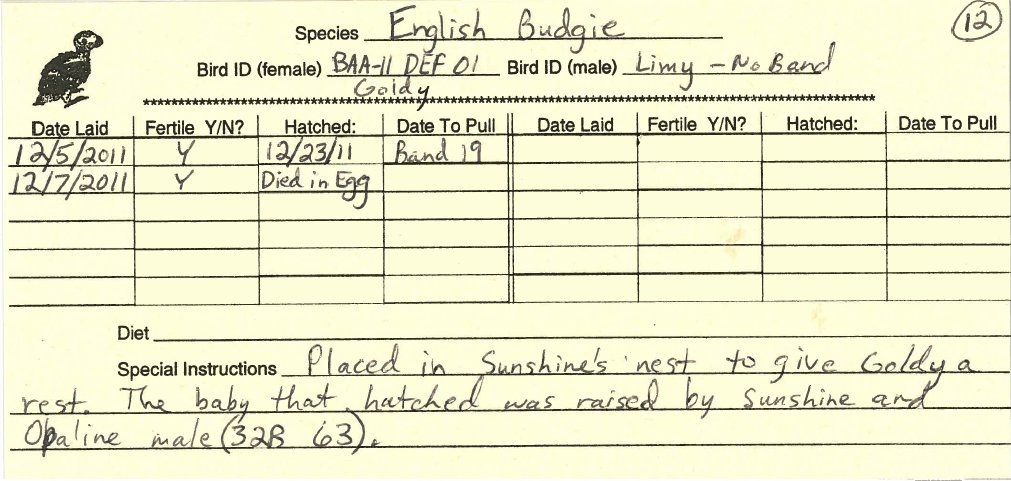 Species English Budgie 12
Bird ID (female) BAA-11 DEF 01 Bird ID (male) Limy - No Band
Goldy
Date Laid Fertile Y/N? Hatched: Date To Pull Date Laid Fertile Y/N? Hatched: Date To Pull
12/5/2011 Y 12/23/11 Band 19
12/7/2011 Y Died in Egg
Diet
Special Instructions Placed in Sunshine's nest to give Goldy a
rest. The baby that hatched was raised by Sunshine and
Opaline male (32B 63).